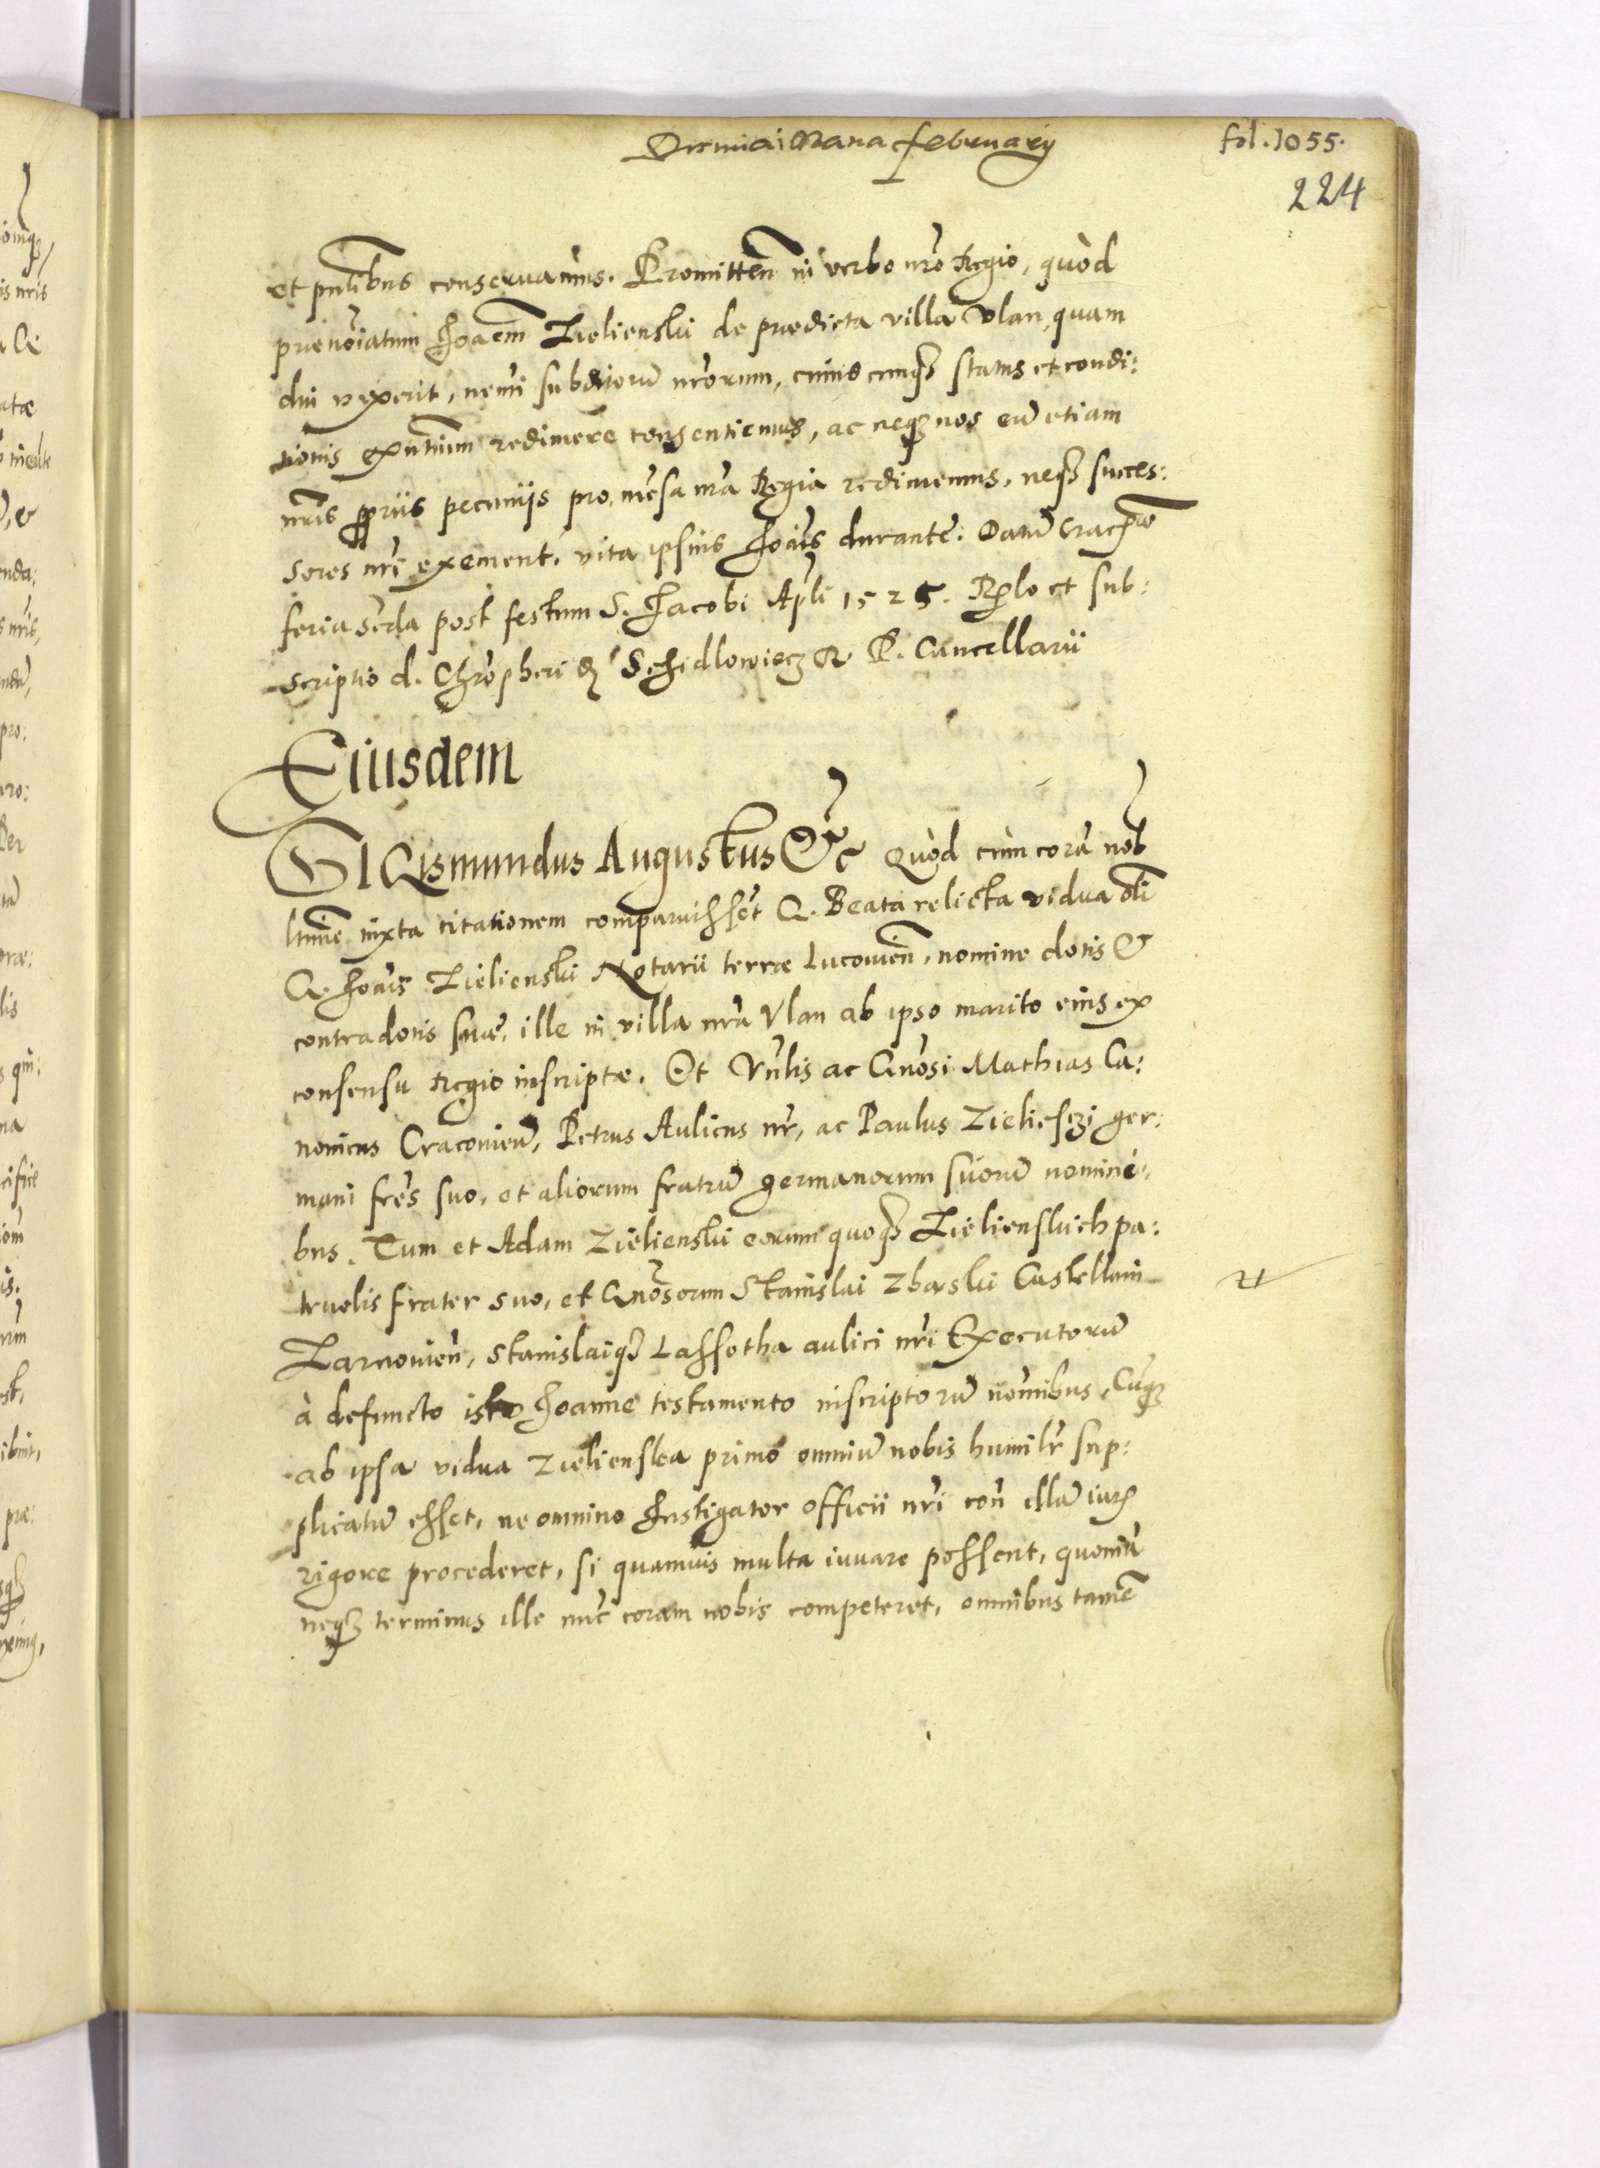 februarij fol. 1055.
224
et pñtibus conseruamus. Promitteñ in verbo nrõ Regio, quòd
prænoĩatum Joañem Zielienski de prædicta villa Vlan, quam
diu vixerit, nemi subditorũ nrõrum, cuiuscunq̃ status et condi:
tionis exñtium redimere consentiemus, ac neq̃ nos eũ etiam
nrĩs ppriis pecuniis pro mẽsa nrã Regia redimemus, neq̃ succes:
sores nrĩ exement, vita ipsius Joãis durante. Datũ Cracõię
feria scďa post festum S. Jacobi Apłi 1525. Rłlo et sub:
scriptio d. Chrõpheri de Schidlowiecz R. P. Cancellarii
Eiusdem
SIGismundus Augustus &c Quòd cùm corã nob
ltimè iuxta citationem comparuisset G. Beata relicta vidua oli
G. Joãis Zielienski Notarii terræ Lucovieñ, nomine dotis &
contradotis suæ, ille in villa nrã Vlan ab ipso marito eius ex
consensu Regio inscriptæ. Et Vñlis ac Gñosi Mathias Ca:
nonicus Cracovieñ, Petrus Aulicus nr̃, ac Paulus Zieliesczi ger:
mani frẽs suo, et aliorum fratrũ germanorum suorũ nomini:
bus. Tum et Adam Zielienski eorum quoq̃ Zielienskich pa:
truelis frater suo, et Gñosorum Stanislai Zbaski Castellani
Zarnovieñ, Stanislaiq̃ Lassotha aulici nrĩ Executorũ
à defuncto isto Joanne testamento inscriptorũ nomĩbus, Cuq̃
ab ipsa vidua Zielienska primò omniũ nobis humilr̃ sup:
plicatũ esset, ne omnino Instigator officii nrĩ coñ illã iuris
rigore procederet, si quamvis multa iuvare possent, quoniã
neq̃ terminus ille nũc coram nobis competeret, omnibus tamẽ